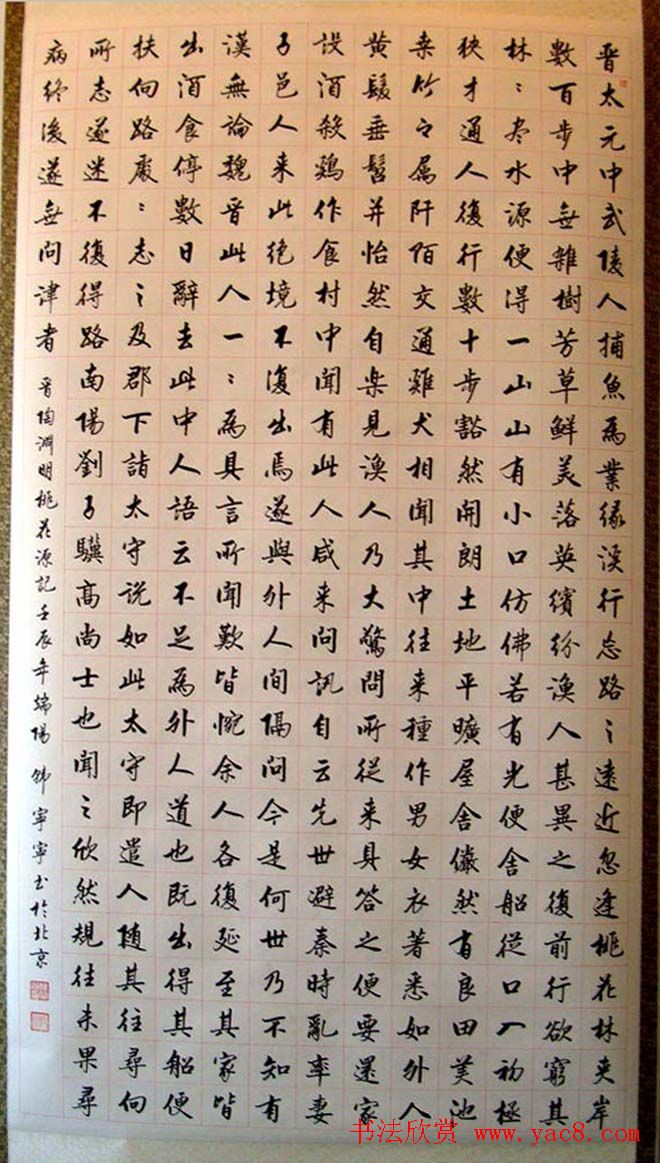 晉太元中武陵人捕魚為業緣溪行忘路〻遠近忽逢桃花林夾岸
數百步中無雜樹芳草鮮美落英繽紛漁人甚異之復前行欲窮其
林〻盡水源便得一山山有小口仿佛若有光便舍船從口入初極
狹才通人復行數十步豁然開朗土地平曠屋舍儼然有良田美池
桑竹之屬阡陌交通雞犬相聞其中往來種作男女衣著悉如外人
黃髮垂髫并怡然自樂見漁人乃大驚問所從來具答之便要還家
設酒殺雞作食村中聞有此人咸來問訊自云先世避秦時亂率妻
子邑人来此絕境不復出焉遂與外人間隔問今是何世乃不知有
漢無論魏晉此人一〻為具言所聞歎皆惋余人各復延至其家皆
出酒食停數日辭去此中人語云不足為外人道也既出得其船便
扶向路處〻志〻及郡下詣太守說如此太守即遣人隨其往尋向
所志遂迷不復得路南陽劉子驥高尚士也聞〻欣然規往未果尋
病終後遂無問津者 晉陶淵明桃花源記壬辰年端陽 韓寧寧書於北京
书法欣赏 www.yac8.com